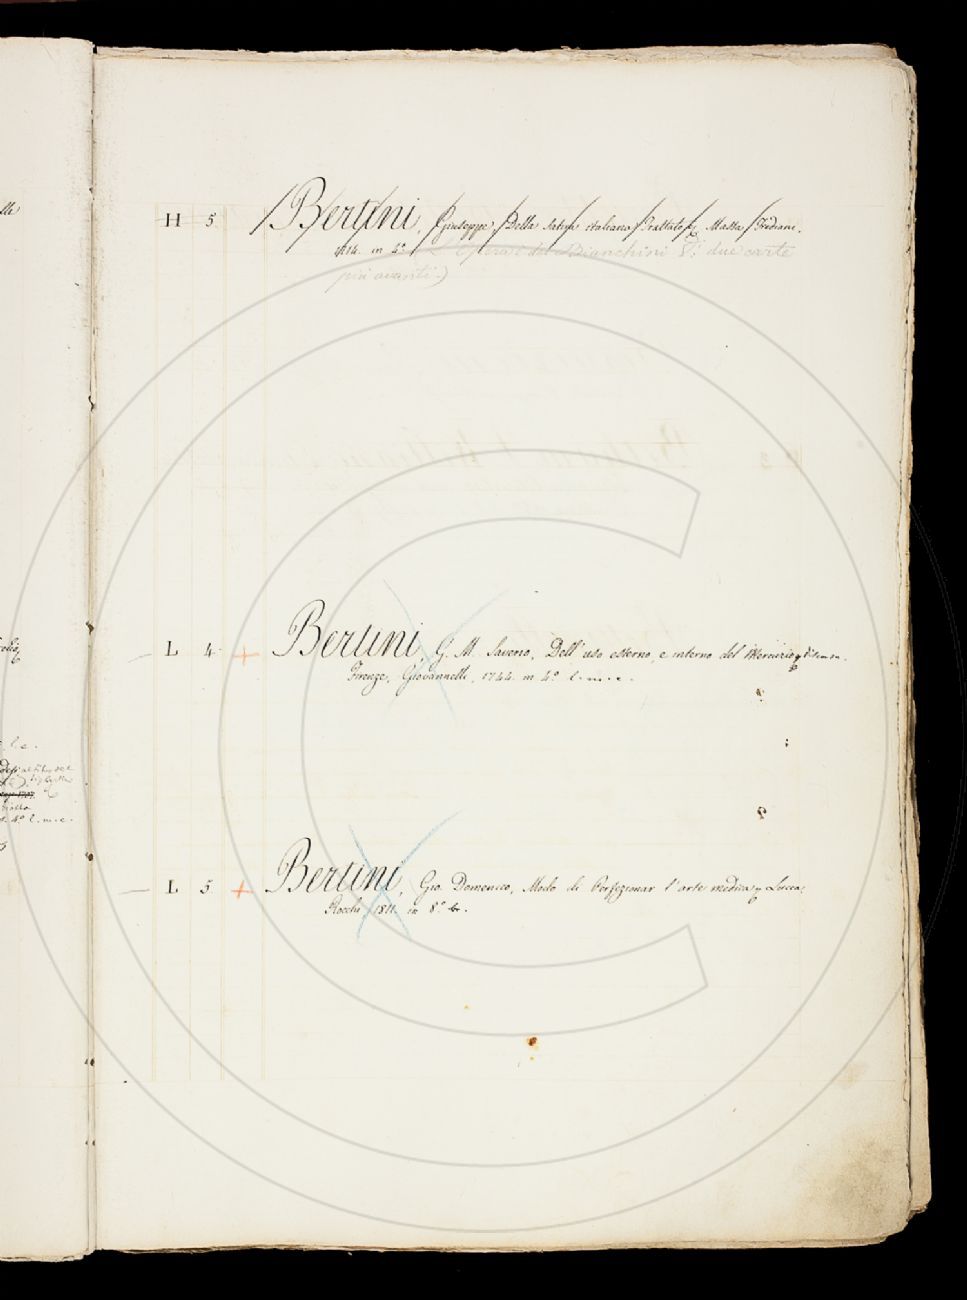 H 5 Bertini, Giuseppe, Della Satira italiana Trattato, Massa, Frediani.
1714. in 4° (È opera del Bianchini V. due carte
più avanti.)
L 4 + Bertini, G. M. Saverio, Dell'uso esterno, e interno del Mercurio,
Firenze, Giovannelli, 1744. in 4° l. m. c.
L 5 + Bertini, Gio. Domenico, Modo di Perfezionar l'arte medica, Lucca,
Rocchi 1811. in 8° br.